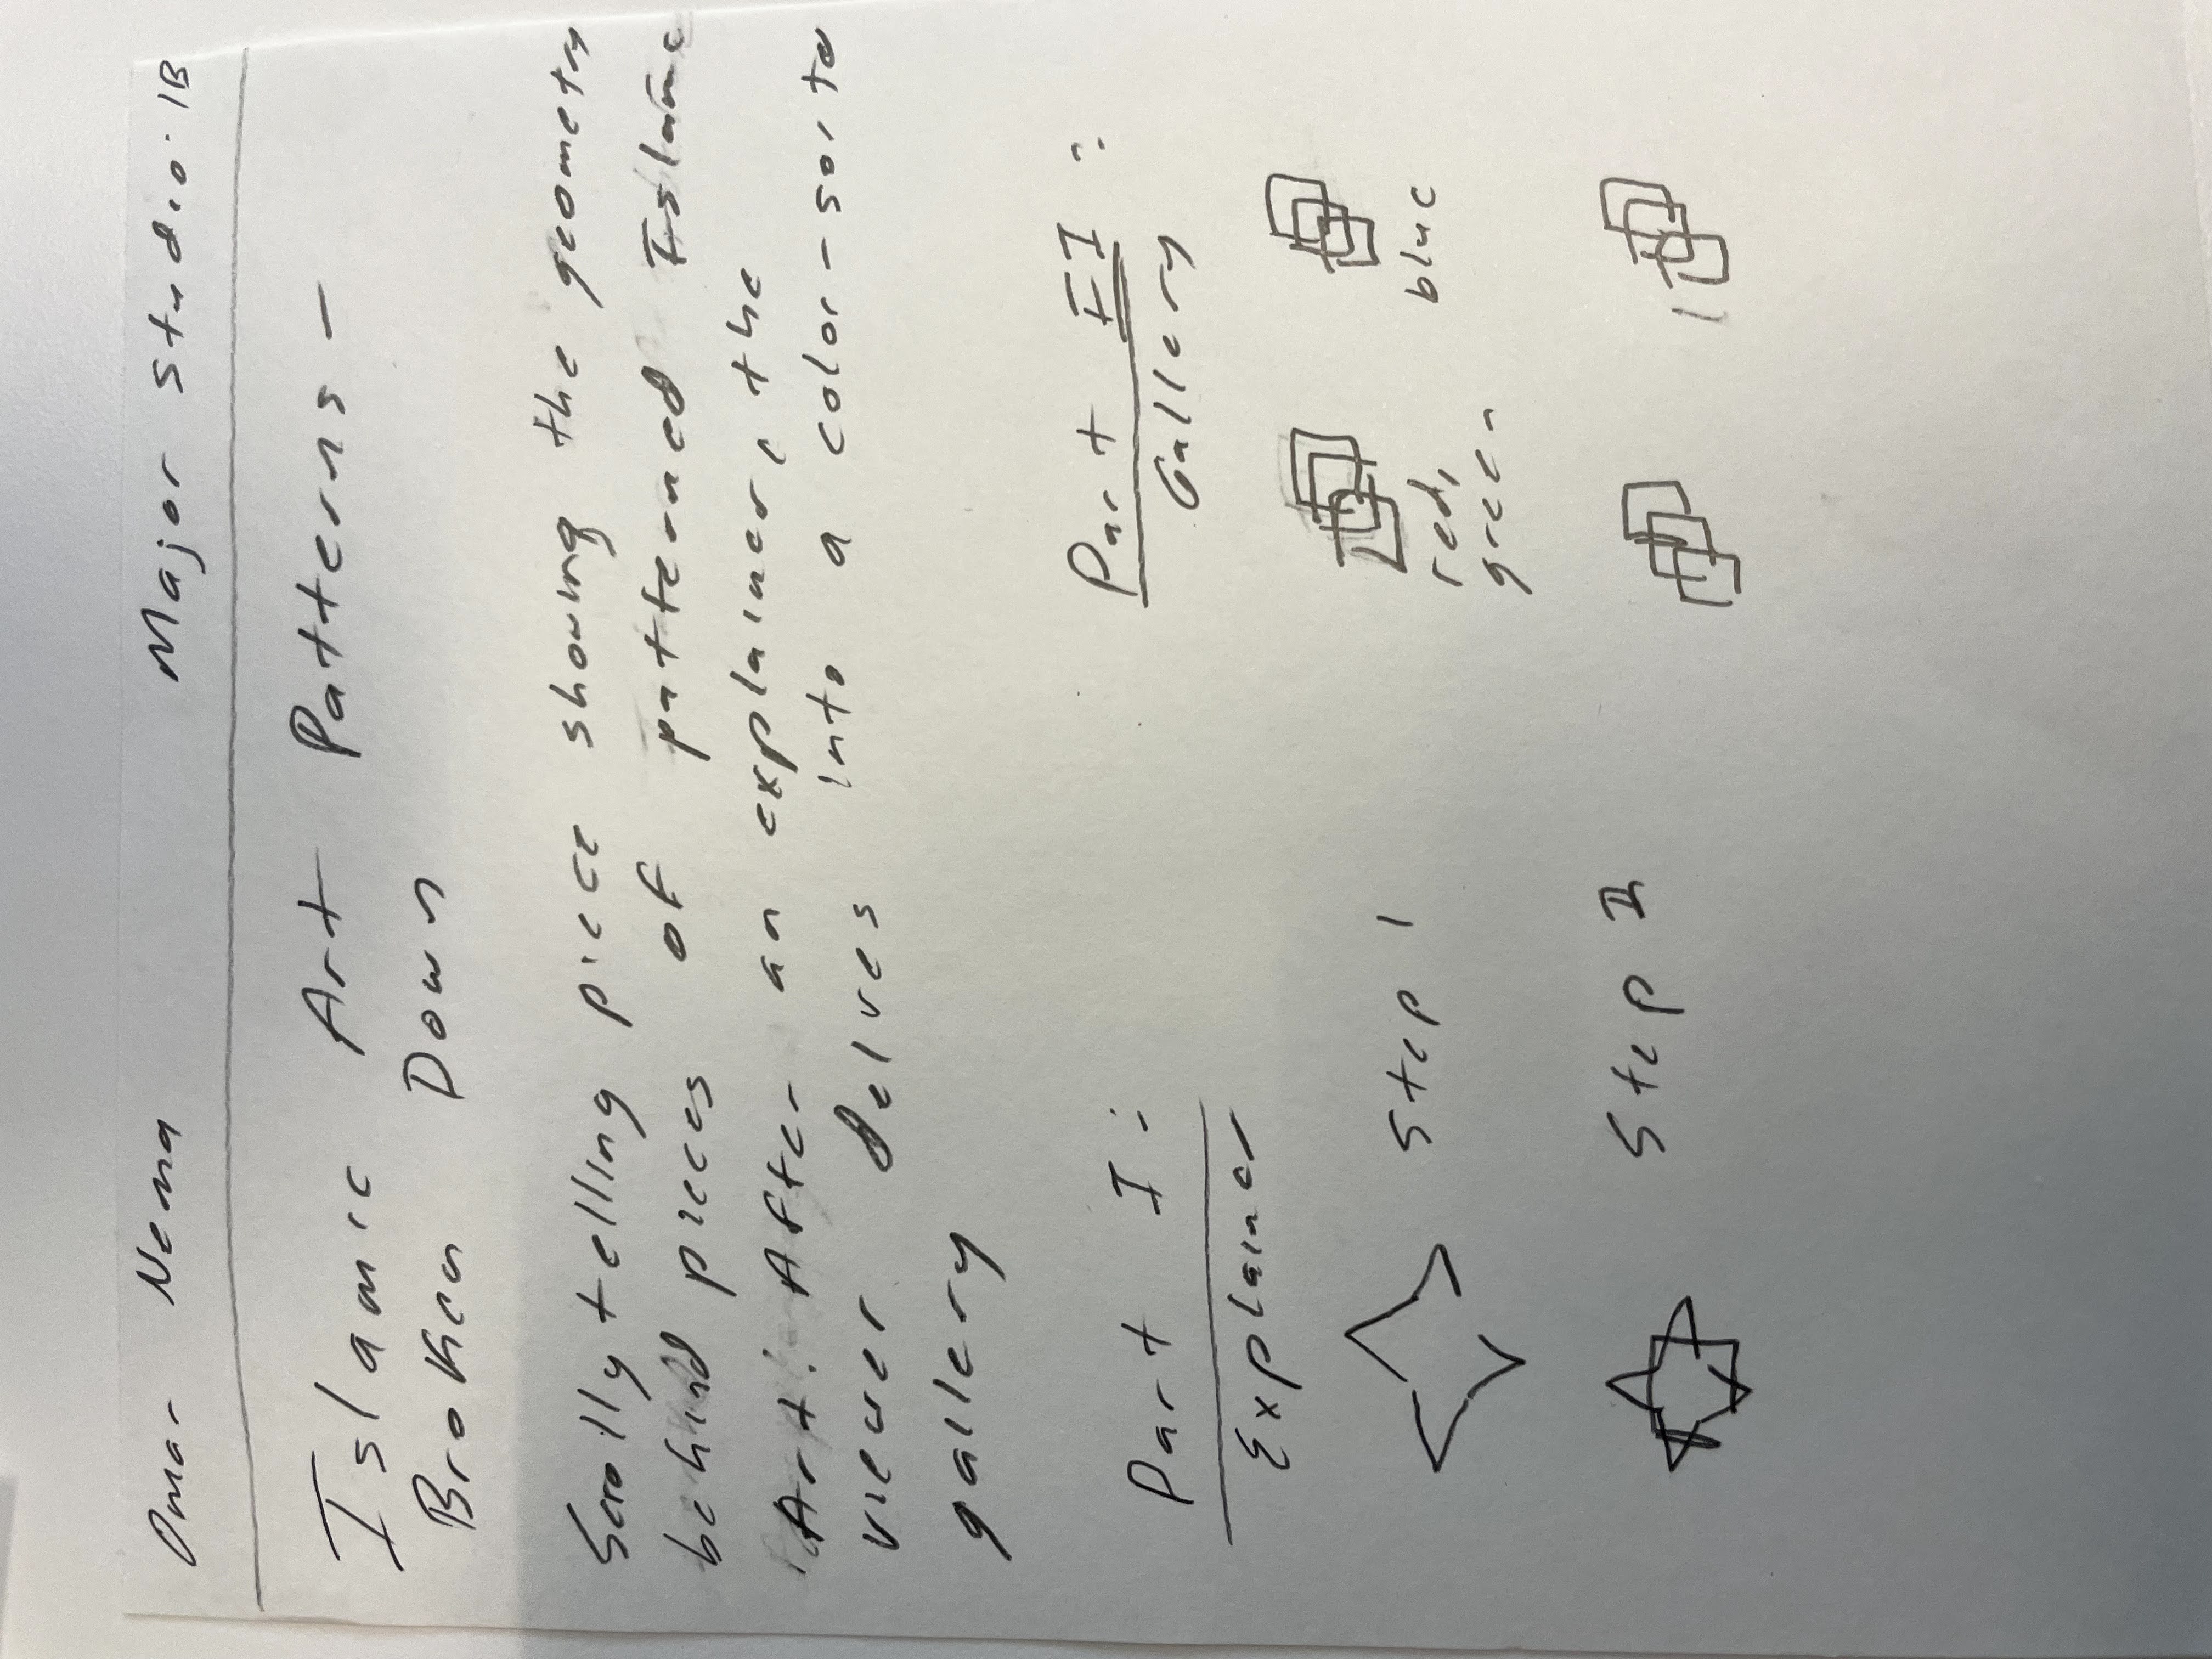 Omar Nema Major Studio 1B
Islamic Art Patterns -
Broken Down
Scrollytelling piece showing the geometry
behind pieces of patterned Islamic
Art. After an explainer, the
viewer delves into a color-sorted
gallery
Part I:
Explainer
Step 1
Step II
Part II:
Gallery
red,
green
blue